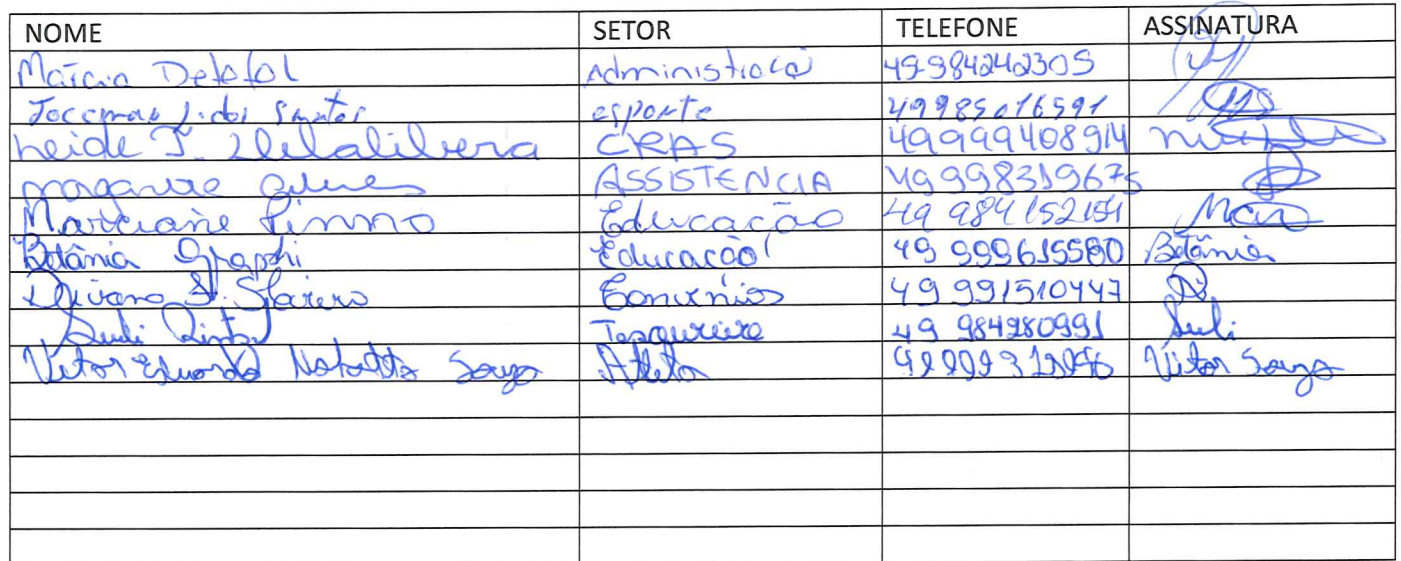 NOME SETOR TELEFONE ASSINATURA
Márcia Detofol Administração 49984242305
J. dos Santos esporte 49985016591
Neide T. Delalibera CRAS 49999408914
ASSISTENCIA 49998319675
Marciane Pinno Educação 49 984152154 Mar
Betânia Educação 49 999615580 Betânia
Convênios 49 991510447
Suli Tesoureira 49 984280991 Suli
Vitor Eduardo Souza Atleta Vitor Souza